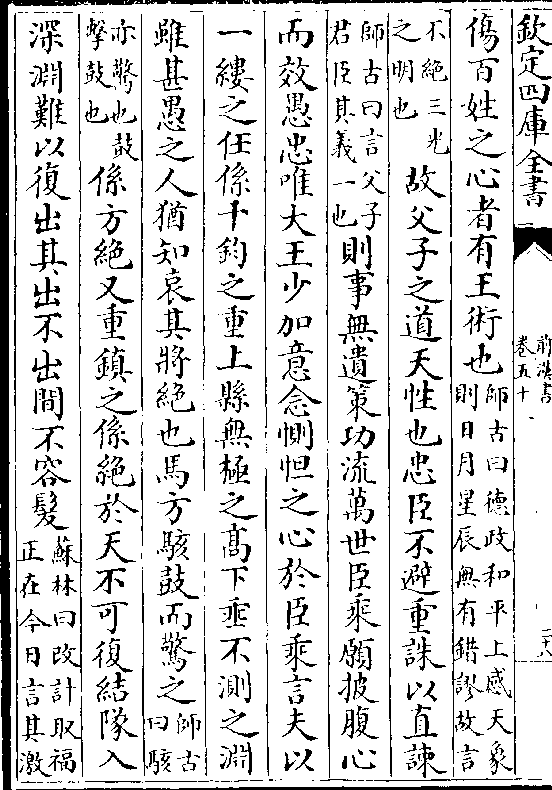 欽定四庫全書
前漢書
卷五十一
二十八
傷百姓之心者有王術也師古曰德政和平上感天象
則日月星辰無有錯謬故言
不絕三光
之明也故父子之道天性也忠臣不避重誅以直諫
師古曰言父子
君臣其義一也則事無遺策功流萬世臣乘願披腹心
而效愚忠唯大王少加意念惻怛之心於臣乘言夫以
一縷之任係千鈞之重上縣無極之高下垂不測之淵
雖甚愚之人猶知哀其將絕也馬方駭鼓而驚之師古
曰駭
亦驚也鼓
擊鼓也係方絕又重鎮之係絕於天不可復結隊入
深淵難以復出其出不出間不容髮蘇林曰改計取福
正在今日言其激